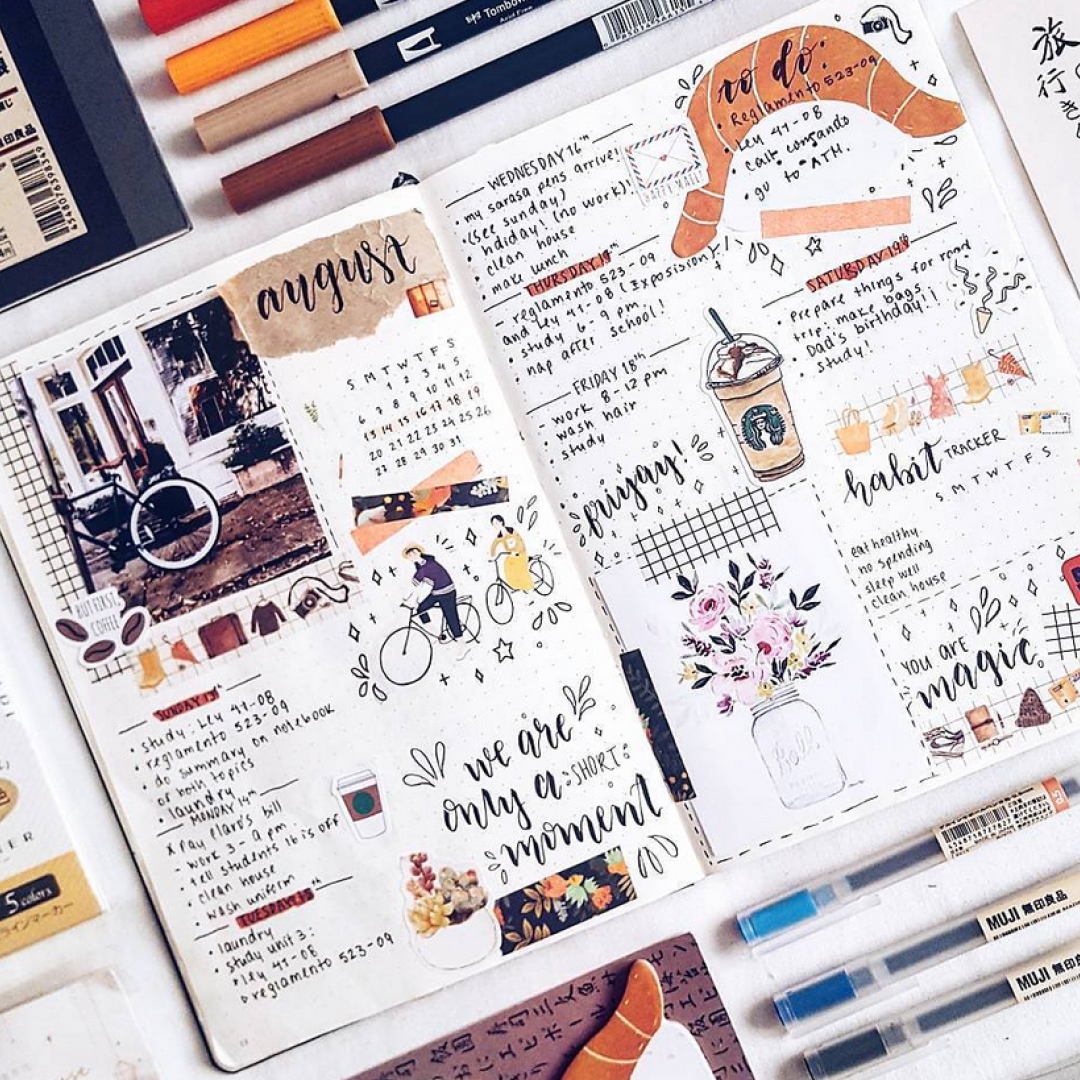 Tombow
Acid Free
無印良品
4548076398349
旅
行
august
S M T W T F S
1 2 3 4 5
6 7 8 9 10 11 12
13 14 15 16 17 18 19
20 21 22 23 24 25 26
27 28 29 30 31
BUT FIRST
COFFEE
SUNDAY 13th
• study: Ley 47-08
• reglamento 523-09
• do summary on notebook
of both topics
• laundry
MONDAY 14th
x pay Claro's bill
- work 3- 9 pm
• tell students 16 is off
• clean house
• wash uniform
TUESDAY 15th
• laundry
• study unit 3:
• ley 47-08
• reglamento 523-09
we are
only a :SHORT:
moment
WEDNESDAY 16th
• my sarasa pens arrive!
(see sunday)
• hdiday! (no work)!
• clean house
• make lunch
THURSDAY 17th
- reglamento 523-09
and Ley 47-08 (Exposision)!
• study 6-9 pm
• nap after school!
FRIDAY 18th
- work 8-12 pm
• wash hair
• study
friyay!
to do:
• Reglamento 523-09
• Ley 47-08
• go to ATH.
SATURDAY 19th
• Prepare things for road
trip: make bags
• Dad's birthday!!
• study!
habit TRACKER
S M T W T F S
eat healthy
no spending
sleep well
clean house
YOU ARE
magic
Ball
5 colors
ラインマーカー
0.5
MUJI 無印良品
MUJI 無印良品